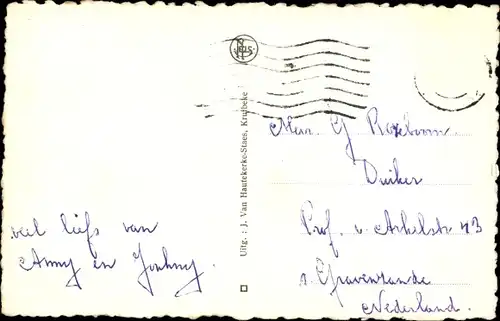 veel liefs van
Anny en Johnny.
Uitg. : J. Van Hautekerke-Staes, Kruibeke
Mevr. G Rozeboom.
Duiker
Prof. v. Arkelstr 43
s Gravenzande
Nederland.